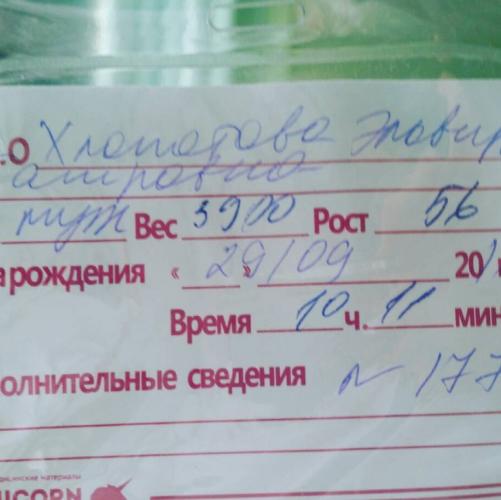 .О Хлопотова Эльвир
муж Вес 3900 Рост 56
а рождения « 29 » / 09 20
Время 10 ч. 11 мин
олнительные сведения № 177
дицинские материалы
ICORN